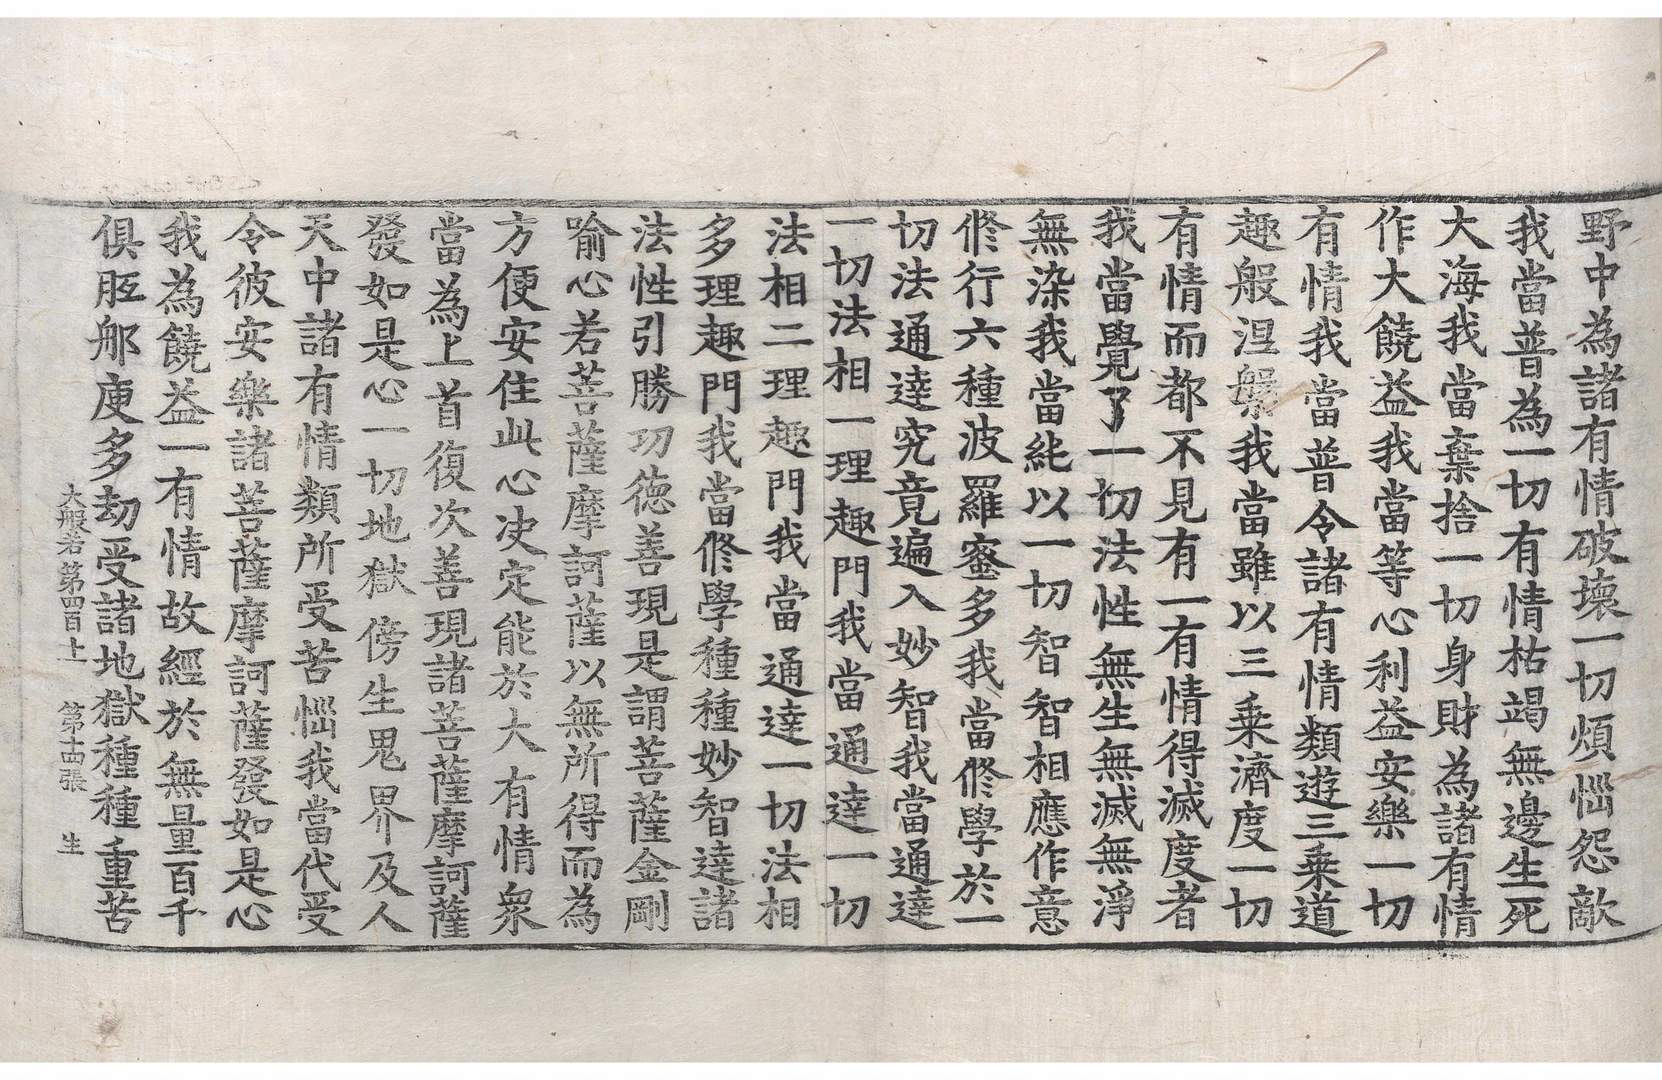 野中為諸有情破壞一切煩惱怨敵
我當普為一切有情枯竭無邊生死
大海我當棄捨一切身財為諸有情
作大饒益我當等心利益安樂一切
有情我當普令諸有情類遊三乘道
趣般涅槃我當雖以三乘濟度一切
有情而都不見有一有情得滅度者
我當覺了一切法性無生無滅無淨
無染我當純以一切智智相應作意
修行六種波羅蜜多我當修學於一
切法通達究竟遍入妙智我當通達
一切法相一理趣門我當通達一切
法相二理趣門我當通達一切法相
多理趣門我當修學種種妙智達諸
法性引勝功德善現是謂菩薩金剛
喻心若菩薩摩訶薩以無所得而為
方便安住此心决定能於大有情眾
當為上首復次善現諸菩薩摩訶薩
發如是心一切地獄傍生鬼界及人
天中諸有情類所受苦惱我當代受
令彼安樂諸菩薩摩訶薩發如是心
我為饒益一有情故經於無量百千
俱胝那庾多劫受諸地獄種種重苦
大般若第四百十一 第十四張 生